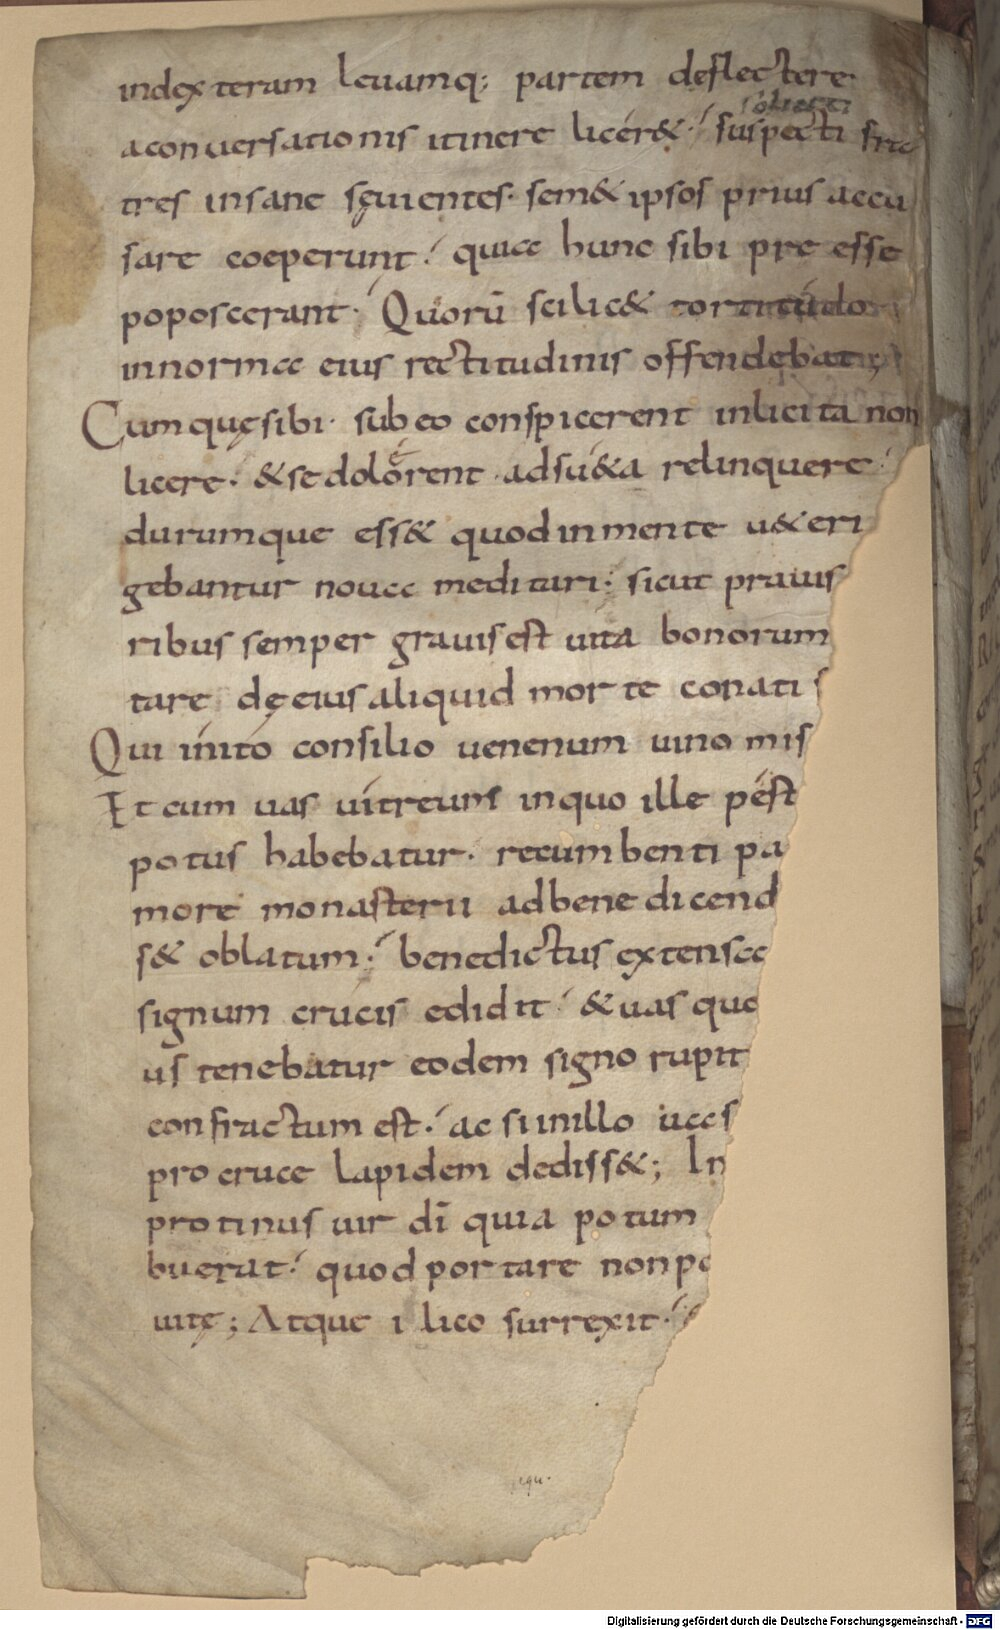 indexteram leuamq; partem deflectere
soliciti
aconuersationis itinere licer&. suspecti fra
tres insane sęuientes. sem&ipsos prius accu
sare coeperunt. quia hunc sibi pre esse
poposcerant. Quorū scilic& tortitudo
innorma eius rectitudinis offendebat;
Cumquęsibi. sub eo conspicerent inlicita non
licere. &se dolerent adsu&a relinquere.
durumque ess& quodinmente u&eri
gebantur noua meditari. sicut prauis
ribus semper grauisest uita bonorum
tare dęeius aliquid morte conati s
Qui inito consilio uenenum uino mis
Et cum uas uitreum inquo ille pest
potus habebatur. recumbenti pa
more monasterii adbenedicend
s& oblatum. benedictus extensa
signum crucis edidit. &uas quo
us tenebatur eodem signo rupit
confractum est. ac siinillo uas
procruce lapidem dediss&; In
protinus uir dī quia potum
buerat. quod portare nonpo
uitę; Atque ilico surrexit.
equ.
Digitalisierung gefördert durch die Deutsche Forschungsgemeinschaft - DFG